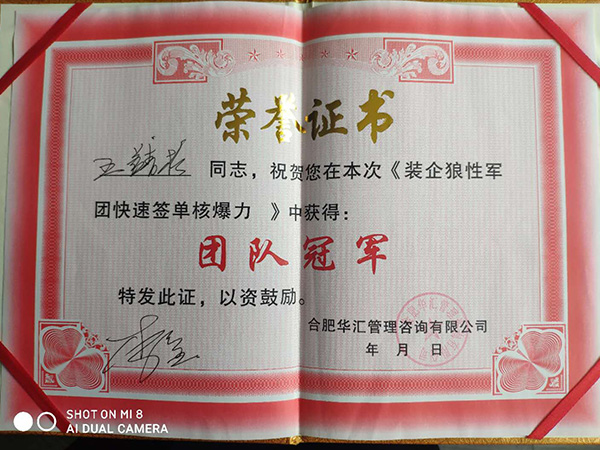 荣誉证书
同志，祝贺您在本次《装企狼性军
团快速签单核爆力 》中获得：
团队冠军
特发此证，以资鼓励。
合肥华汇管理咨询有限公司
年 月 日
SHOT ON MI 8
AI DUAL CAMERA